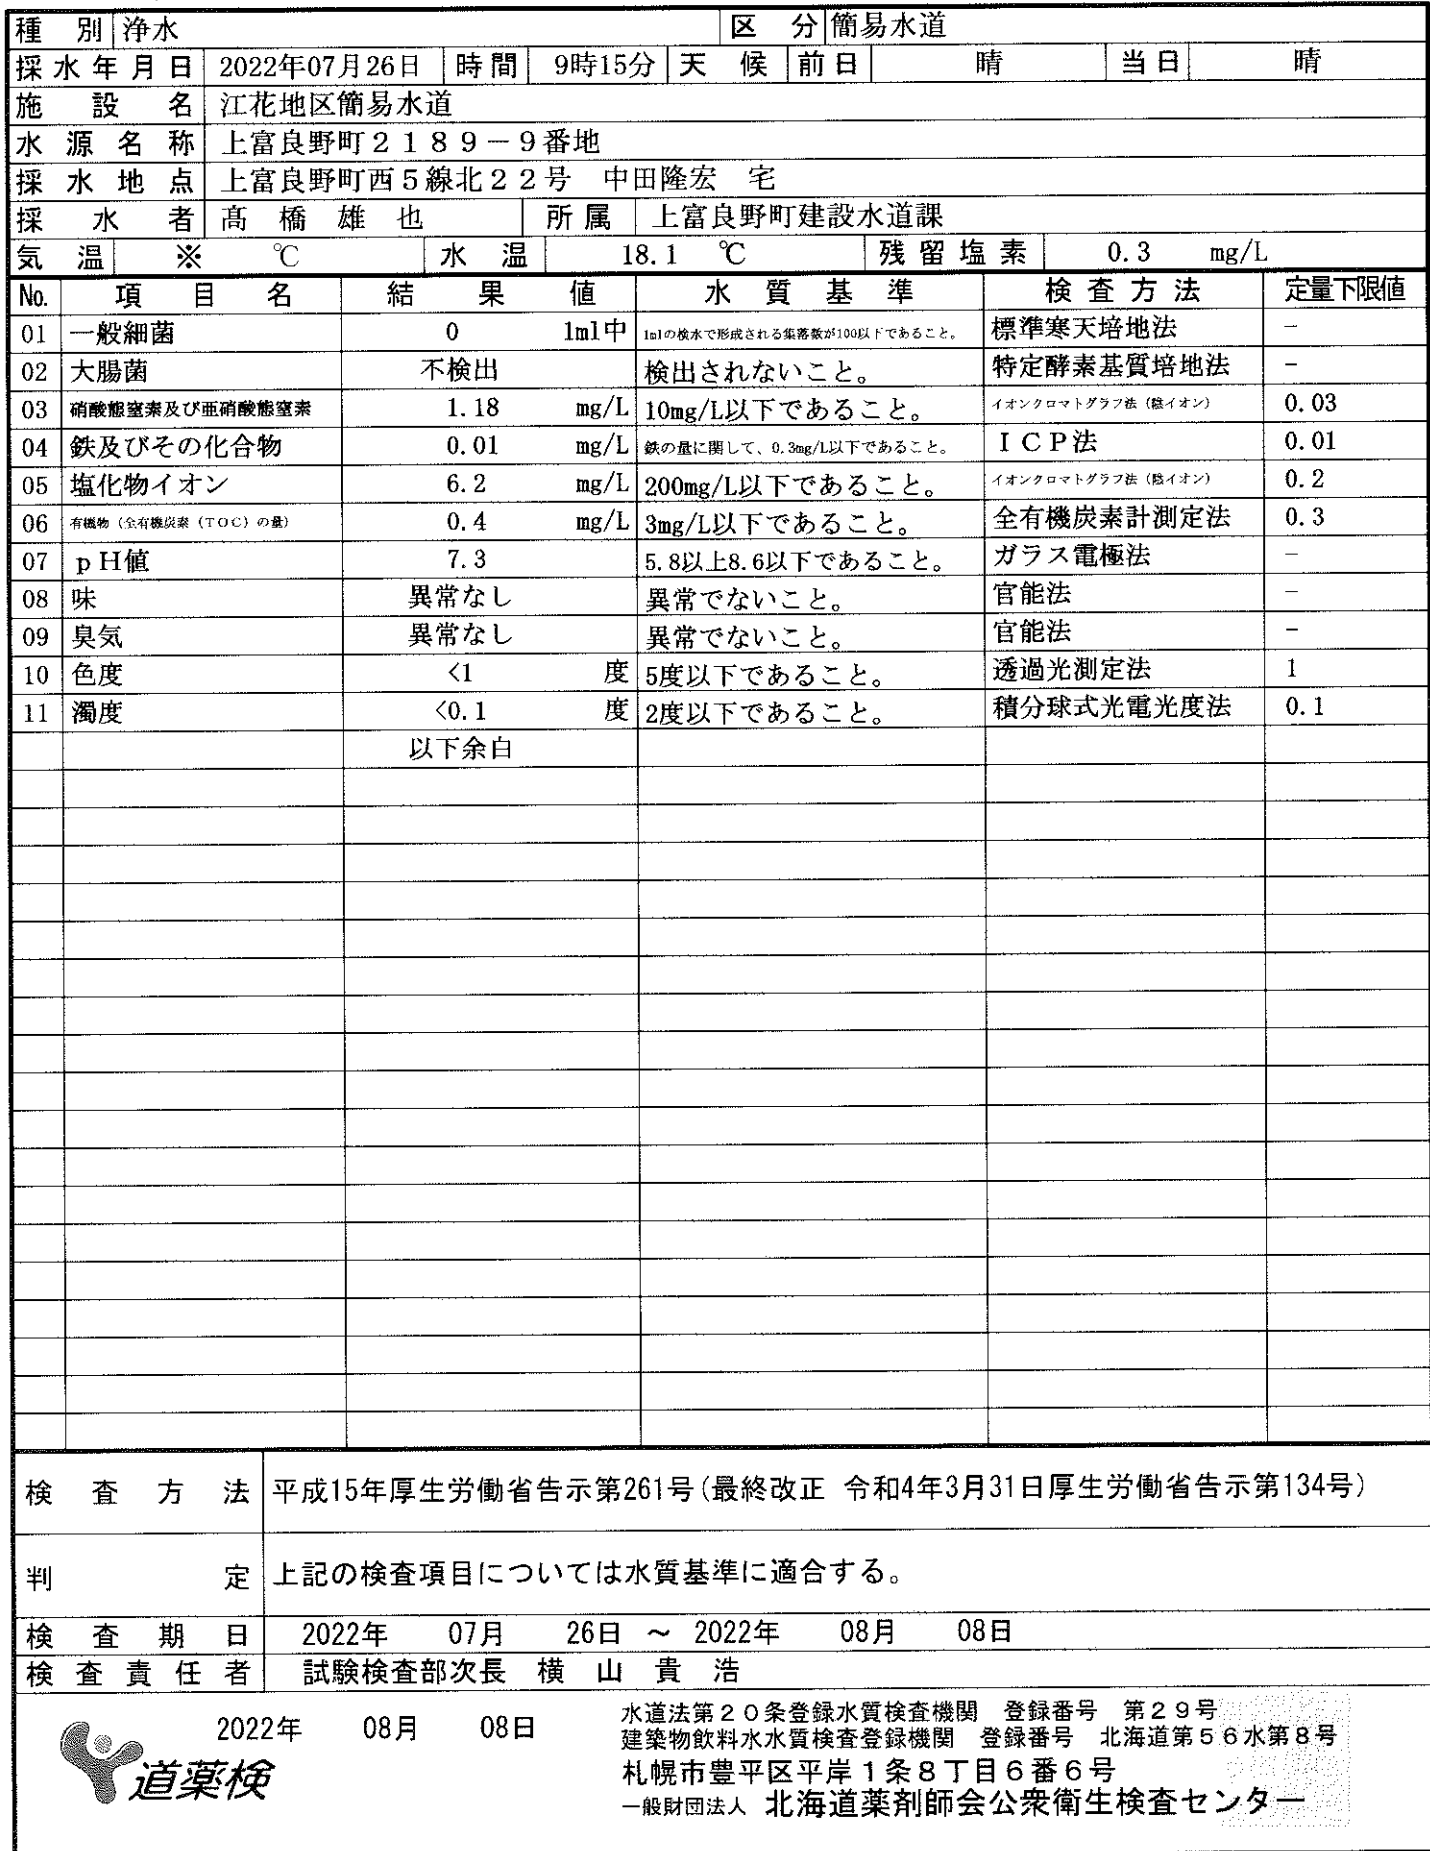 種別 浄水 区分 簡易水道
採水年月日 2022年07月26日 時間 9時15分 天候 前日 晴 当日 晴
施設名 江花地区簡易水道
水源名称 上富良野町２１８９－９番地
採水地点 上富良野町西５線北２２号 中田隆宏 宅
採水者 髙橋雄也 所属 上富良野町建設水道課
気温 ※ ℃ 水温 18.1 ℃ 残留塩素 0.3 mg/L
No. 項目名 結果値 水質基準 検査方法 定量下限値
01 一般細菌 0 1ml中 1mlの検水で形成される集落数が100以下であること。 標準寒天培地法 －
02 大腸菌 不検出 検出されないこと。 特定酵素基質培地法 －
03 硝酸態窒素及び亜硝酸態窒素 1.18 mg/L 10mg/L以下であること。 イオンクロマトグラフ法（陰イオン） 0.03
04 鉄及びその化合物 0.01 mg/L 鉄の量に関して、0.3mg/L以下であること。 ＩＣＰ法 0.01
05 塩化物イオン 6.2 mg/L 200mg/L以下であること。 イオンクロマトグラフ法（陰イオン） 0.2
06 有機物（全有機炭素（TOC）の量） 0.4 mg/L 3mg/L以下であること。 全有機炭素計測定法 0.3
07 ｐＨ値 7.3 5.8以上8.6以下であること。 ガラス電極法 －
08 味 異常なし 異常でないこと。 官能法 －
09 臭気 異常なし 異常でないこと。 官能法 －
10 色度 <1 度 5度以下であること。 透過光測定法 1
11 濁度 <0.1 度 2度以下であること。 積分球式光電光度法 0.1
以下余白
検査方法 平成15年厚生労働省告示第261号(最終改正 令和4年3月31日厚生労働省告示第134号)
判定 上記の検査項目については水質基準に適合する。
検査期日 2022年 07月 26日 ～ 2022年 08月 08日
検査責任者 試験検査部次長 横山貴浩
2022年 08月 08日
道薬検
水道法第２０条登録水質検査機関 登録番号 第２９号
建築物飲料水水質検査登録機関 登録番号 北海道第５６水第８号
札幌市豊平区平岸１条８丁目６番６号
一般財団法人 北海道薬剤師会公衆衛生検査センター